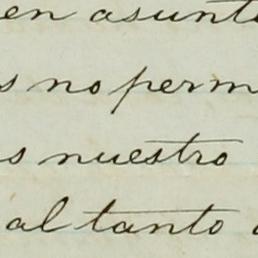 en asunto
s no perm
s nuestro
al tanto